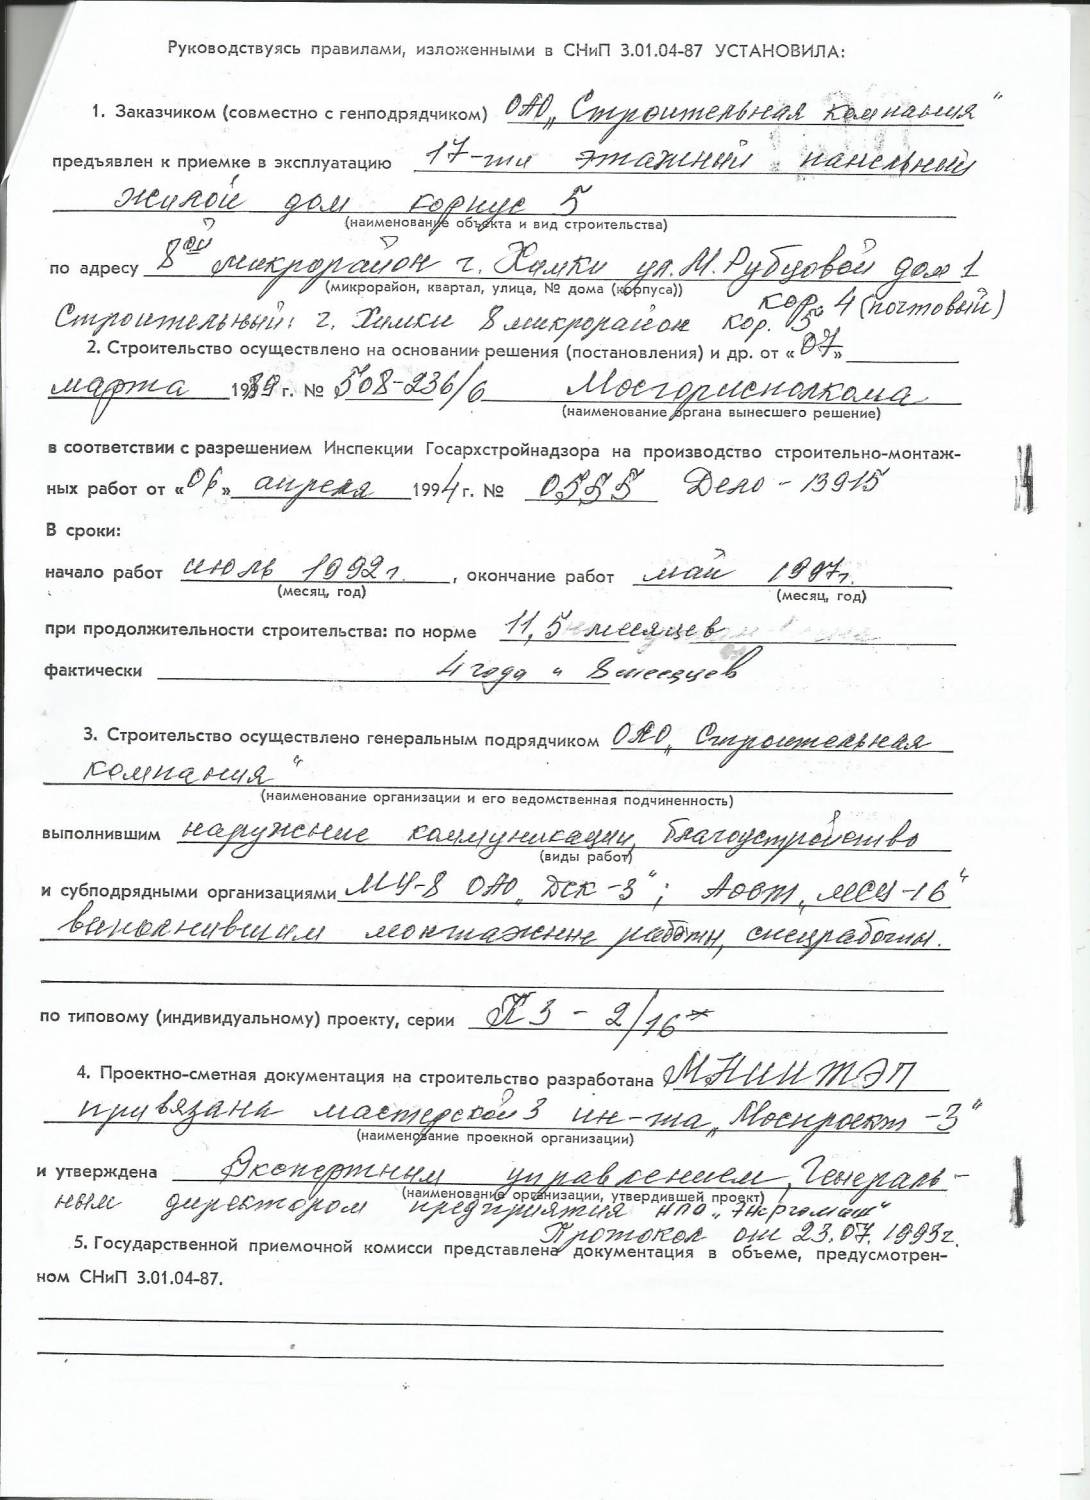 Руководствуясь правилами, изложенными в СНиП 3.01.04-87 УСТАНОВИЛА:
1. Заказчиком (совместно с генподрядчиком) ОАО „Строительная компания“
предъявлен к приемке в эксплуатацию 17-ти этажный панельный
жилой дом корпус 5
(наименование объекта и вид строительства)
по адресу 8ой микрорайон г. Химки ул. М. Рубцовой дом 1
(микрорайон, квартал, улица, № дома (корпуса))
кор. 4 (почтовый)
Строительный: г. Химки 8 микрорайон кор. 5
2. Строительство осуществлено на основании решения (постановления) и др. от «07»
марта 1989 г. № 508-236/6 Мосгорисполкома
(наименование органа вынесшего решение)
в соответствии с разрешением Инспекции Госархстройнадзора на производство строительно-монтаж-
ных работ от «06» апреля 1994 г. № 0555 Дело - 13915
В сроки:
начало работ июль 1992 г. , окончание работ май 1997г.
(месяц, год) (месяц, год)
при продолжительности строительства: по норме 11,5 месяцев
фактически 4 года и 8 месяцев
3. Строительство осуществлено генеральным подрядчиком ОАО „Строительная
компания“
(наименование организации и его ведомственная подчиненность)
выполнившим наружные коммуникации, благоустройство
(виды работ)
и субподрядными организациями МУ-8 ОАО „ДСК-3“; АООТ „МСУ-16“
выполнившим монтажные работы, спецработы.
по типовому (индивидуальному) проекту, серии П3 - 2/16
4. Проектно-сметная документация на строительство разработана МНИИТЭП
привязана мастерской 3 ин-та „Моспроект-3“
(наименование проекной организации)
и утверждена Экспертным управлением, Генераль-
(наименование организации, утвердившей проект)
ным директором предприятия НПО „Энергомаш“
Протокол от 23.07.1993г.
5. Государственной приемочной комисси представлена документация в объеме, предусмотрен-
ном СНиП 3.01.04-87.